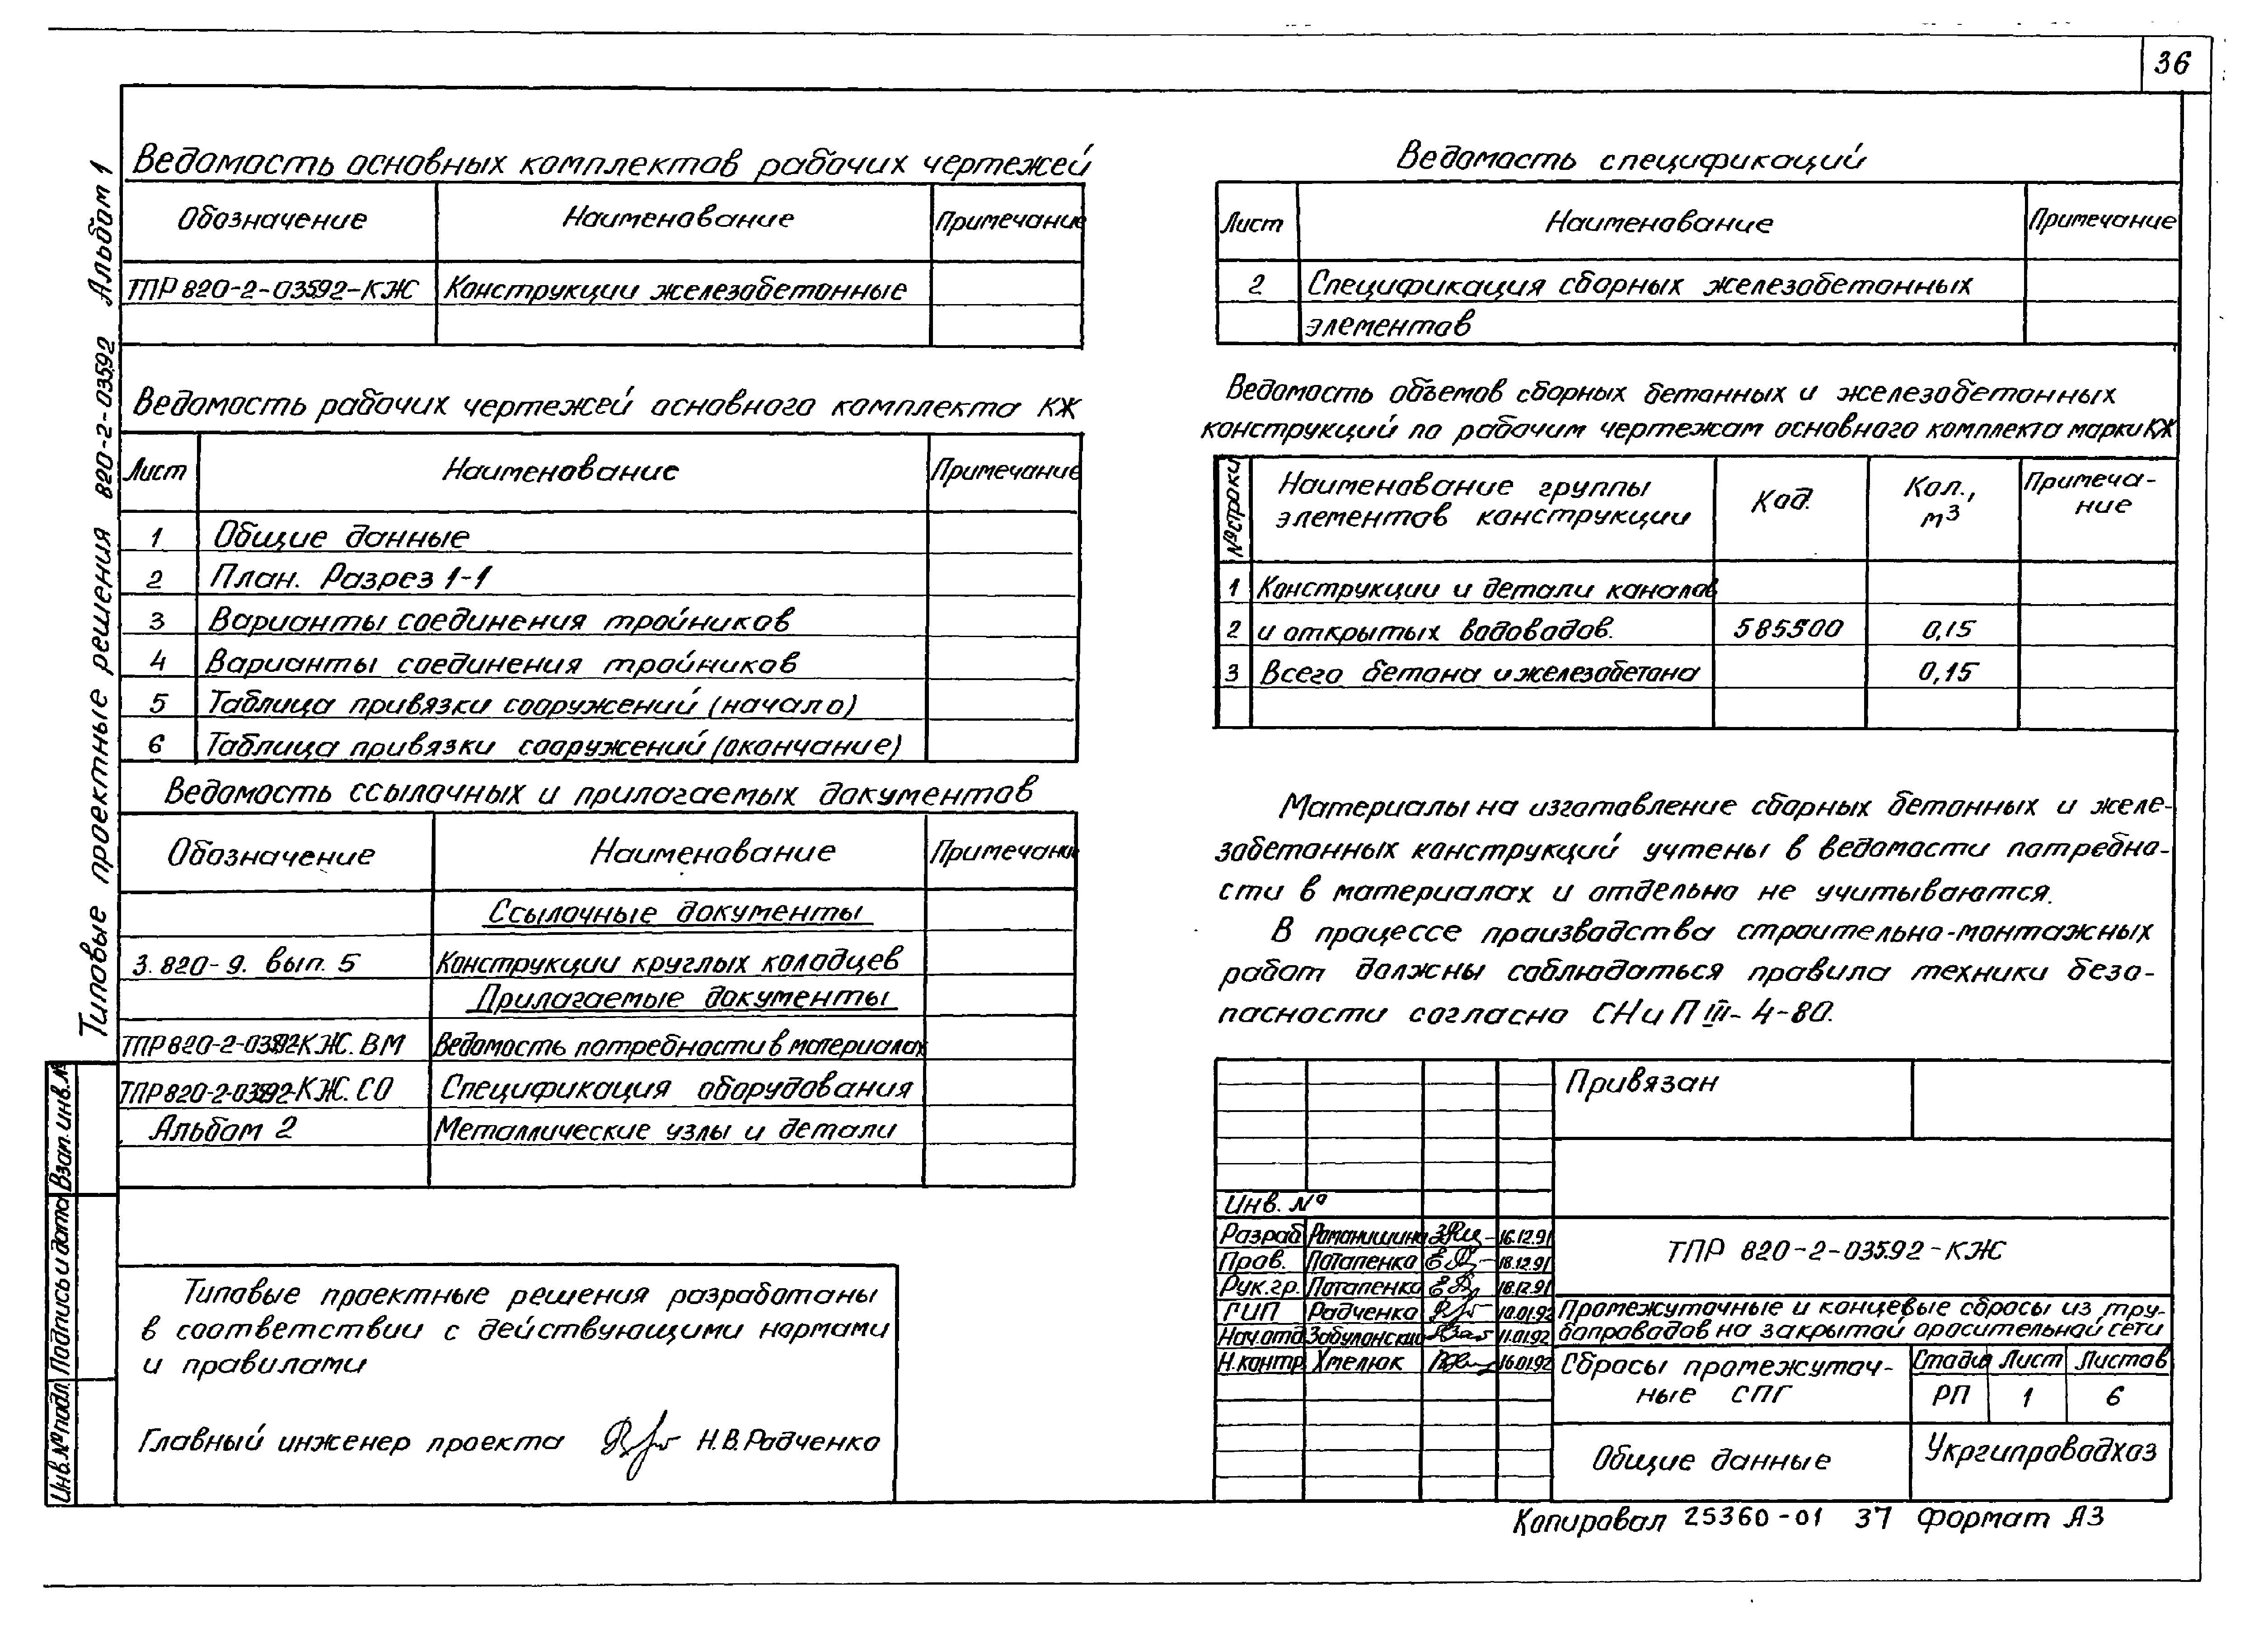 36
Типовые проектные решения 820-2-035.92 Альбом 1
Ведомость основных комплектов рабочих чертежей
Обозначение Наименование Примечание
ТПР 820-2-035.92-КЖ Конструкции железобетонные
Ведомость рабочих чертежей основного комплекта КЖ
Лист Наименование Примечание
1 Общие данные
2 План. Разрез 1-1
3 Варианты соединения тройников
4 Варианты соединения тройников
5 Таблица привязки сооружений (начало)
6 Таблица привязки сооружений (окончание)
Ведомость ссылочных и прилагаемых документов
Обозначение Наименование Примечание
Ссылочные документы
3.820-9. вып. 5 Конструкции круглых колодцев
Прилагаемые документы
ТПР 820-2-035.92-КЖ. ВМ Ведомость потребности в материалах
ТПР 820-2-035.92-КЖ. СО Спецификация оборудования
Альбом 2 Металлические узлы и детали
Типовые проектные решения разработаны
в соответствии с действующими нормами
и правилами
Главный инженер проекта Н.В. Радченко
Взап. инв. №
Подпись и дата
Инв. № подл.
Ведомость спецификаций
Лист Наименование Примечание
2 Спецификация сборных железобетонных
элементов
Ведомость объемов сборных бетонных и железобетонных
конструкций по рабочим чертежам основного комплекта марки КЖ
№ строки Наименование группы элементов конструкции Код. Кол., м3 Примеча-ние
1 Конструкции и детали каналов
2 и открытых водоводов. 585500 0,15
3 Всего бетона и железобетона 0,15
Материалы на изготовление сборных бетонных и желе-
зобетонных конструкций учтены в ведомости потребно-
сти в материалах и отдельно не учитываются.
В процессе производства строительно-монтажных
работ должны соблюдаться правила техники безо-
пасности согласно СНиП III-4-80.
Привязан
Инв. №
Разраб Романишина 16.12.91
Пров. Потапенко 18.12.91
Рук.гр. Потапенко 18.12.91
ГИП Радченко 10.01.92
Нач.отд Забулонский 11.01.92
Н.контр. Хмелюк 16.01.92
ТПР 820-2-035.92-КЖ
Промежуточные и концевые сбросы из тру-
бопроводов на закрытой оросительной сети
Сбросы промежуточ-
ные СПГ
Стадия Лист Листов
РП 1 6
Общие данные
Укргипроводхоз
Копировал 25360-01 37 Формат А3